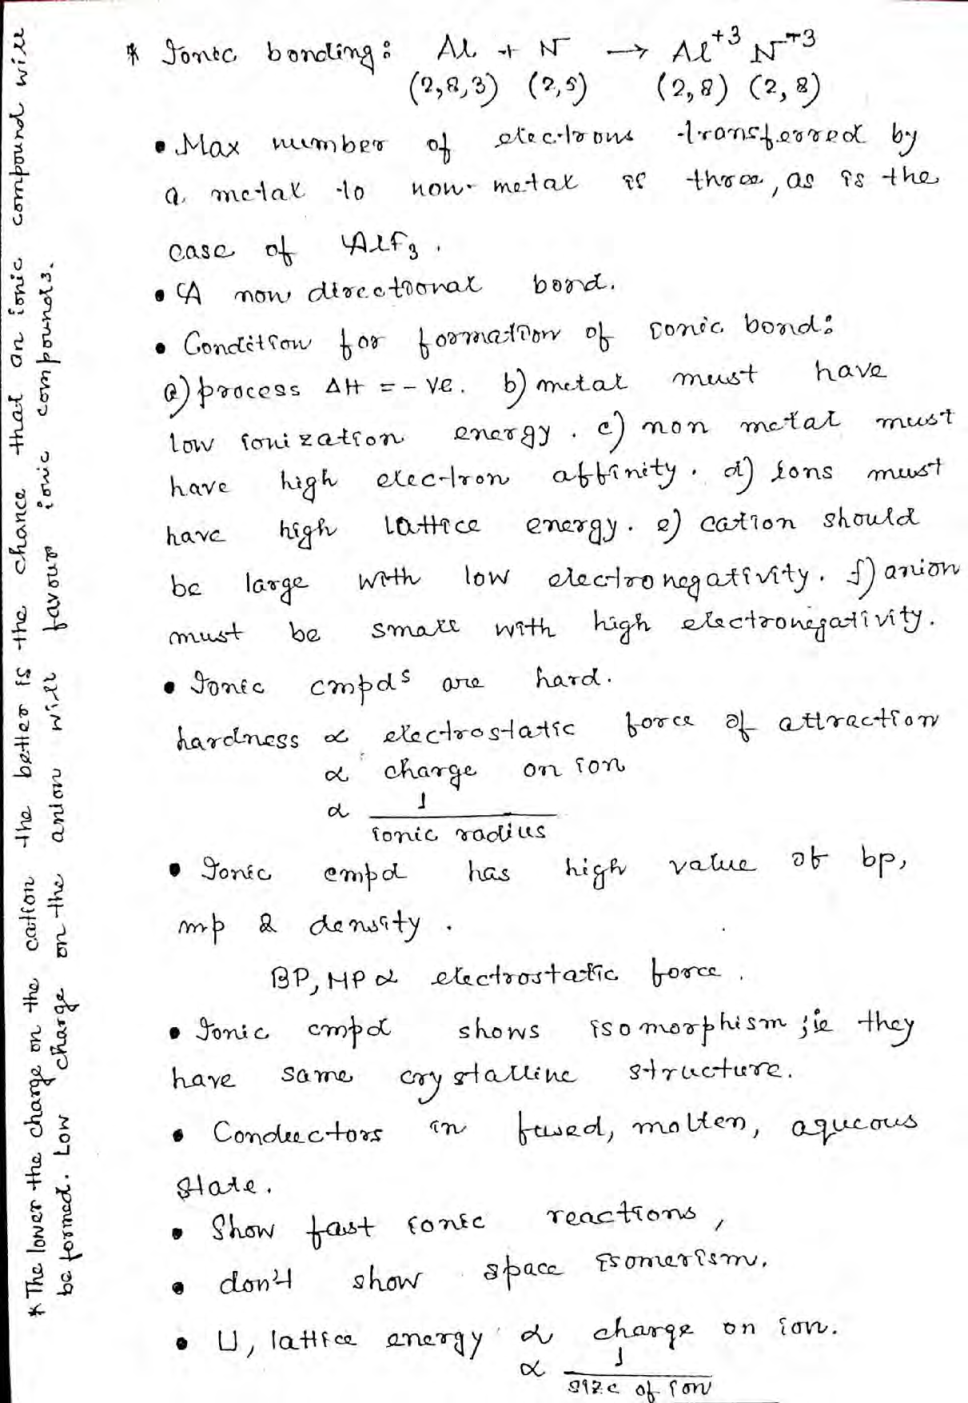 * Ionic bonding: Al + N → Al⁺³ N⁻³
(2,8,3) (2,5) (2,8) (2,8)
• Max number of electrons transferred by
a metal to non-metal is three, as is the
case of AlF₃.
• A non directional bond.
• Condition for formation of ionic bond:
a) process ΔH = -ve. b) metal must have
low ionization energy. c) non metal must
have high electron affinity. d) ions must
have high lattice energy. e) cation should
be large with low electronegativity. f) anion
must be small with high electronegativity.
• Ionic cmpdˢ are hard.
hardness ∝ electrostatic force of attraction
∝ charge on ion
∝ 1
ionic radius
• Ionic cmpd has high value of bp,
mp & density.
BP, MP ∝ electrostatic force.
• Ionic cmpd shows isomorphism; ie they
have same crystalline structure.
• Conductors in fused, molten, aqueous
state.
• Show fast ionic reactions,
• don't show space isomerism.
• U, lattice energy ∝ charge on ion.
∝ 1
size of ion
* The lower the charge on the cation the better is the chance that an ionic compound will
be formed. Low charge on the anion will favour ionic compounds.